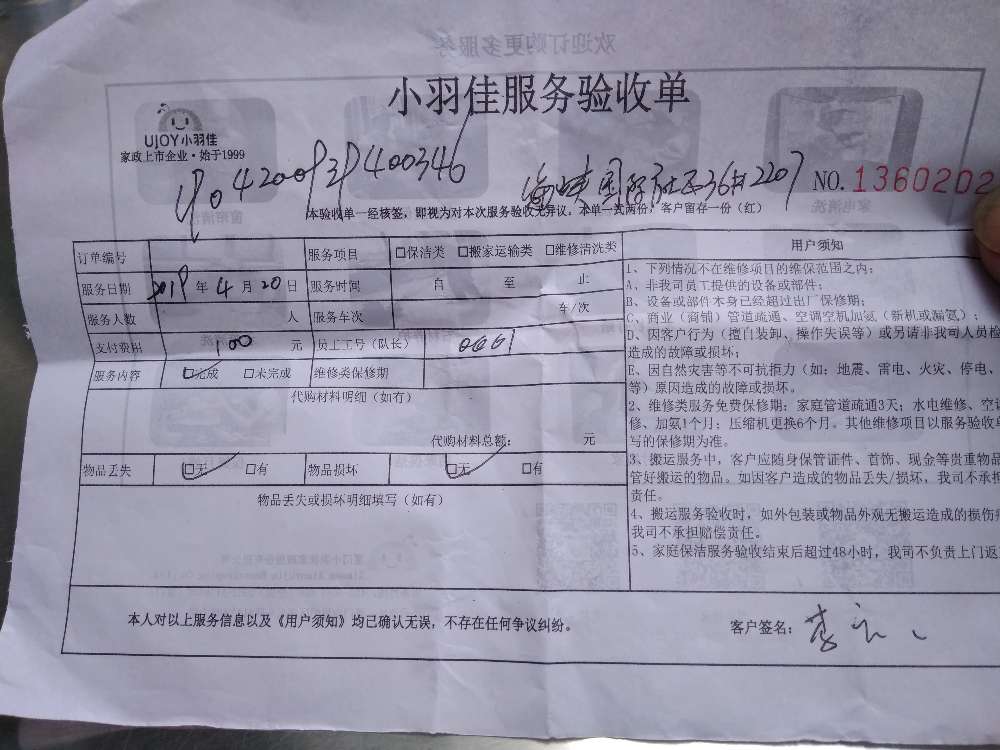 小羽佳服务验收单
UJOY小羽佳
家政上市企业·始于1999
NO. 1360202
本验收单一经核签，即视为对本次服务验收无异议，本单一式两份，客户留存一份（红）
订单编号 服务项目 □保洁类 □搬家运输类 □维修清洗类
服务日期 2019年4月20日 服务时间 自 至 止
服务人数 人 服务车次 车/次
支付费用 100 元 员工工号（队长） 0661
服务内容 □完成 □未完成 维修类保修期
代购材料明细（如有）
代购材料总额： 元
物品丢失 □无 □有 物品损坏 □无 □有
物品丢失或损坏明细填写（如有）
用户须知
1、下列情况不在维修项目的维保范围之内：
A、非我司员工提供的设备或部件；
B、设备或部件本身已经超过出厂保修期；
C、商业（商铺）管道疏通、空调空机加氨（新机或漏氨）；
D、因客户行为（擅自装卸、操作失误等）或另请非我司人员检
造成的故障或损坏；
E、因自然灾害等不可抗拒力（如：地震、雷电、火灾、停电、
等）原因造成的故障或损坏。
2、维修类服务免费保修期：家庭管道疏通3天；水电维修、空调
修、加氨1个月；压缩机更换6个月。其他维修项目以服务验收单
写的保修期为准。
3、搬运服务中，客户应随身保管证件、首饰、现金等贵重物品
管好搬运的物品。如因客户造成的物品丢失/损坏，我司不承担
责任。
4、搬运服务验收时，如外包装或物品外观无搬运造成的损伤
我司不承担赔偿责任。
5、家庭保洁服务验收结束后超过48小时，我司不负责上门返
本人对以上服务信息以及《用户须知》均已确认无误，不存在任何争议纠纷。
客户签名：